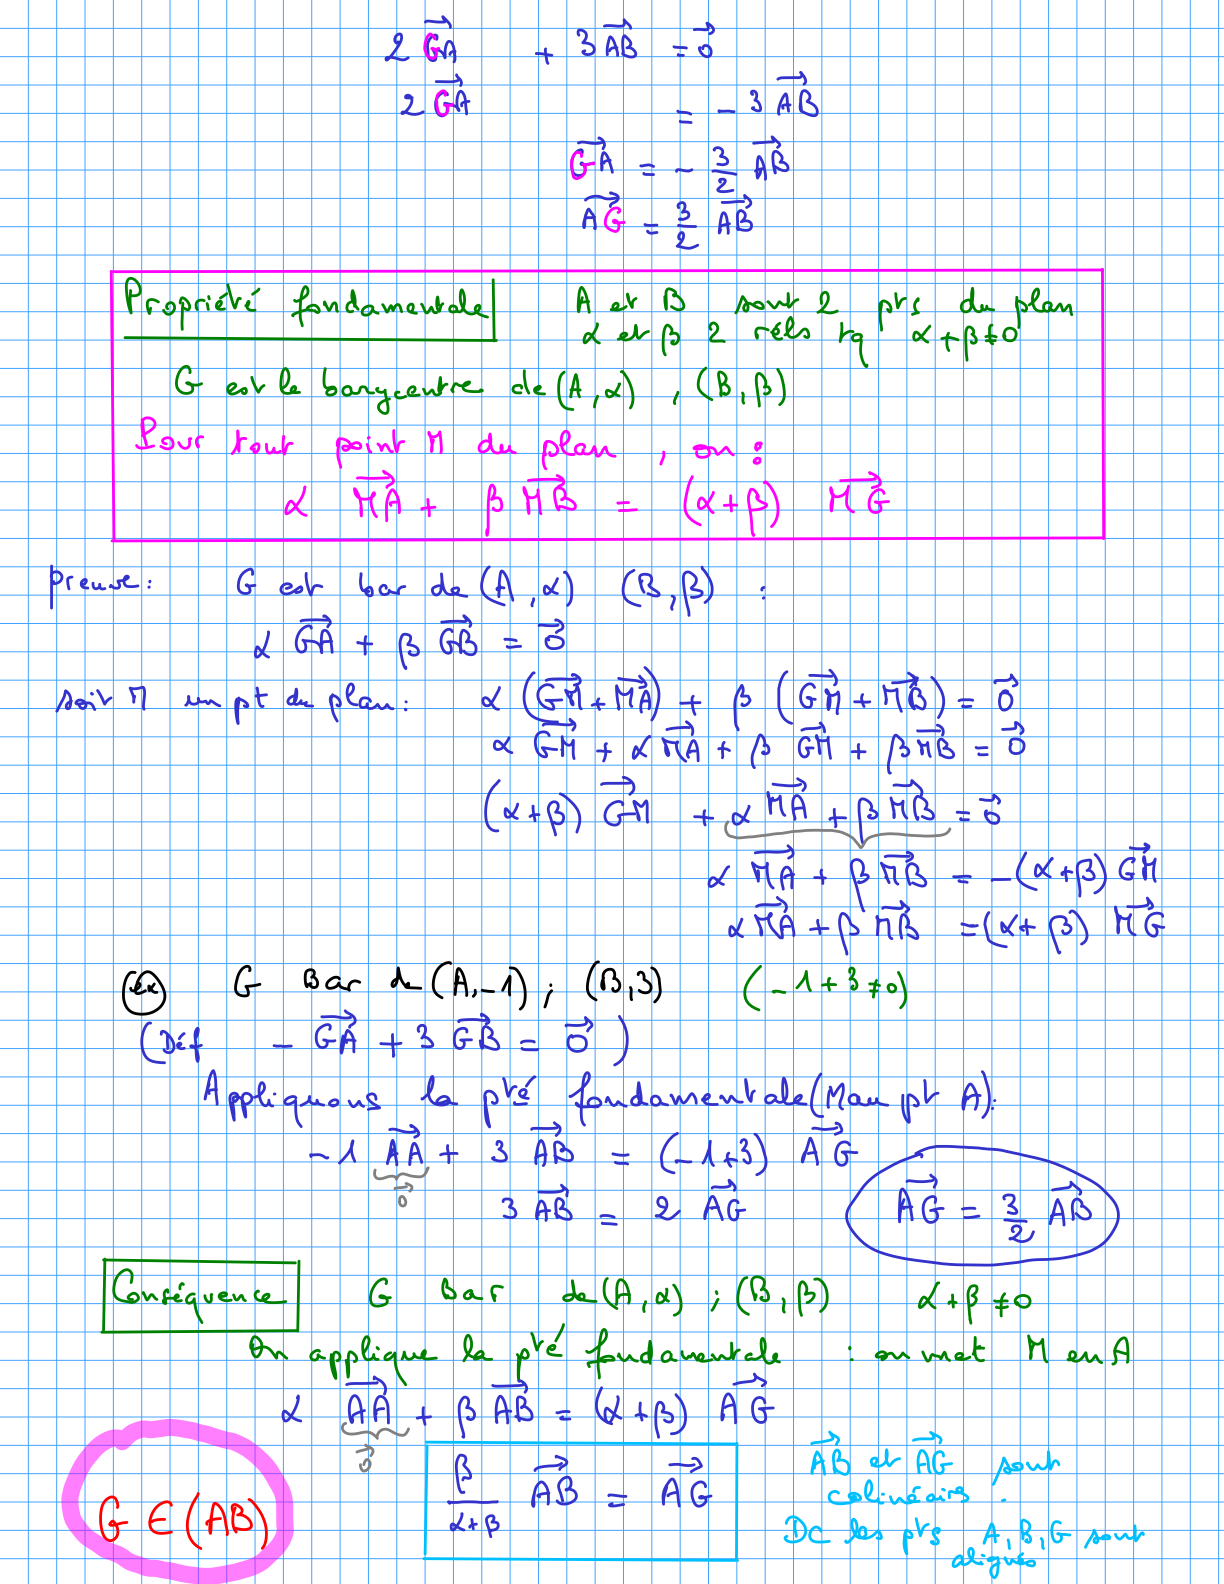 2 \vec{GA} + 3 \vec{AB} = \vec{0}
2 \vec{GA} = - 3 \vec{AB}
\vec{GA} = - \frac{3}{2} \vec{AB}
\vec{AG} = \frac{3}{2} \vec{AB}
Propriété fondamentale A et B sont 2 pts du plan
α et β 2 réels tq α + β ≠ 0
G est le barycentre de (A, α) , (B, β)
Pour tout point M du plan , on :
α \vec{MA} + β \vec{MB} = (α+β) \vec{MG}
Preuve : G est bar de (A, α) (B, β) :
α \vec{GA} + β \vec{GB} = \vec{0}
soit M un pt du plan : α (\vec{GM} + \vec{MA}) + β (\vec{GM} + \vec{MB}) = \vec{0}
α \vec{GM} + α \vec{MA} + β \vec{GM} + β \vec{MB} = \vec{0}
(α+β) \vec{GM} + α \vec{MA} + β \vec{MB} = \vec{0}
α \vec{MA} + β \vec{MB} = -(α+β) \vec{GM}
α \vec{MA} + β \vec{MB} = (α+β) \vec{MG}
ex G Bar de (A,-1) ; (B,3) (-1+3≠0)
(Déf - \vec{GA} + 3 \vec{GB} = \vec{0})
Appliquons la pté fondamentale (M au pt A) :
-1 \vec{AA} + 3 \vec{AB} = (-1+3) \vec{AG}
\vec{0}
3 \vec{AB} = 2 \vec{AG} \vec{AG} = \frac{3}{2} \vec{AB}
Conséquence G Bar de (A, α) ; (B, β) α + β ≠ 0
On applique la pté fondamentale : on met M en A
α \vec{AA} + β \vec{AB} = (α+β) \vec{AG}
\vec{0}
\frac{β}{α+β} \vec{AB} = \vec{AG}
G ∈ (AB)
\vec{AB} et \vec{AG} sont
colinéaires .
Dc les pts A, B, G sont
alignés